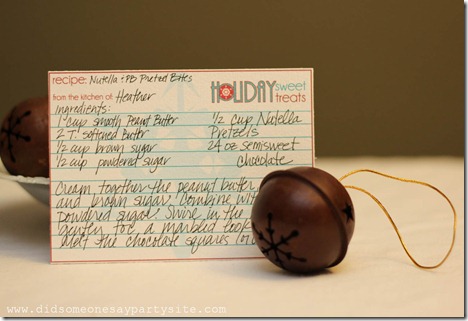 recipe: Nutella + PB Pretzel Bites
from the kitchen of: Heather
HOLIDAY sweet treats
Ingredients:
1 cup smooth Peanut Butter
2 T softened Butter
1/2 cup brown sugar
1/2 cup powdered sugar
1/2 cup Nutella
Pretzels
24 oz semisweet
chocolate
Cream together the peanut butter
and brown sugar. Combine
powdered sugar. Swirl in the
gently for a marbled look
Melt the chocolate squares
www.didsomeonesaypartysite.com